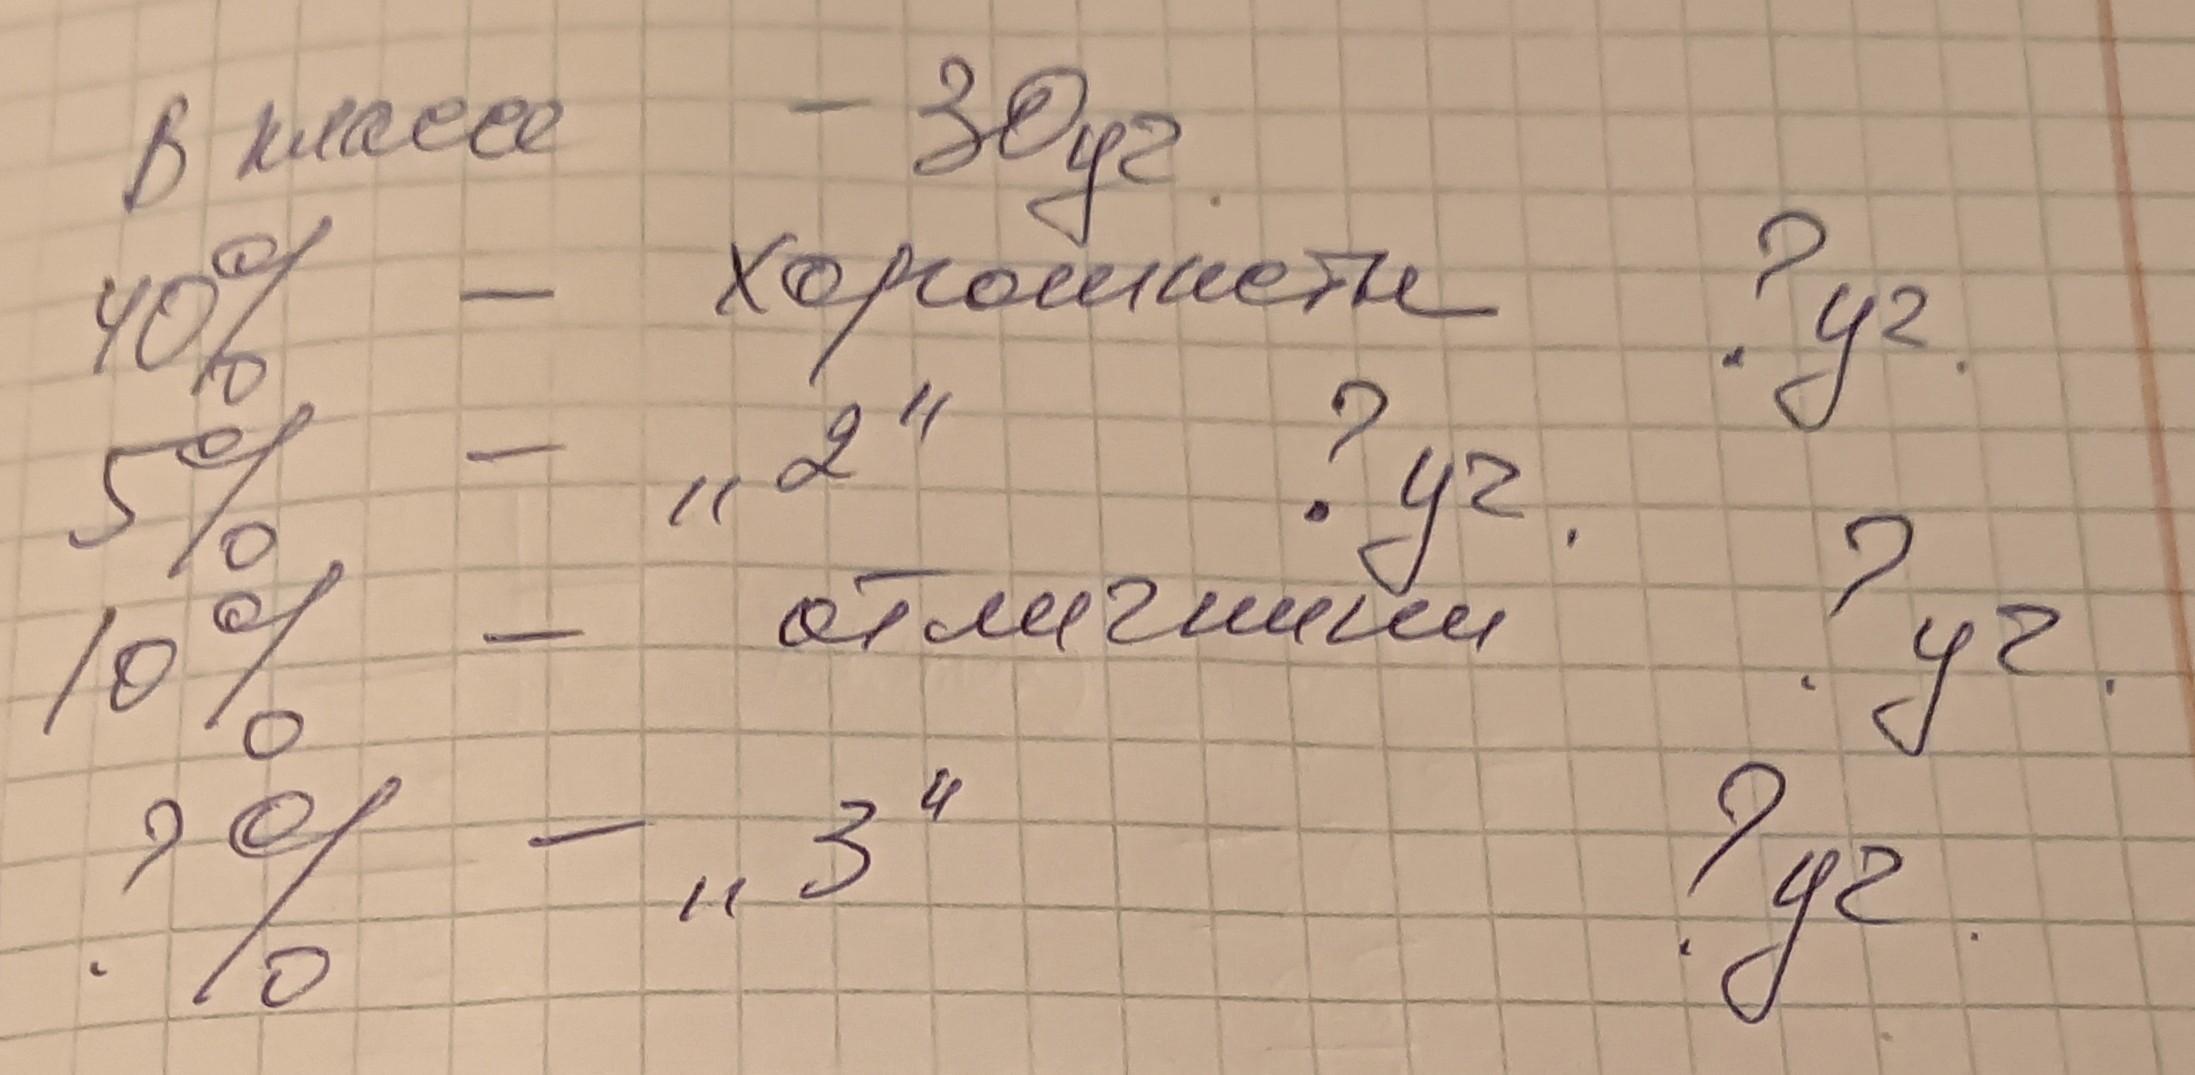 В классе - 30 уч.
40% - хорошисты ? уч.
5% - „2" ? уч.
10% - отличники ? уч.
? % - „3" ? уч.